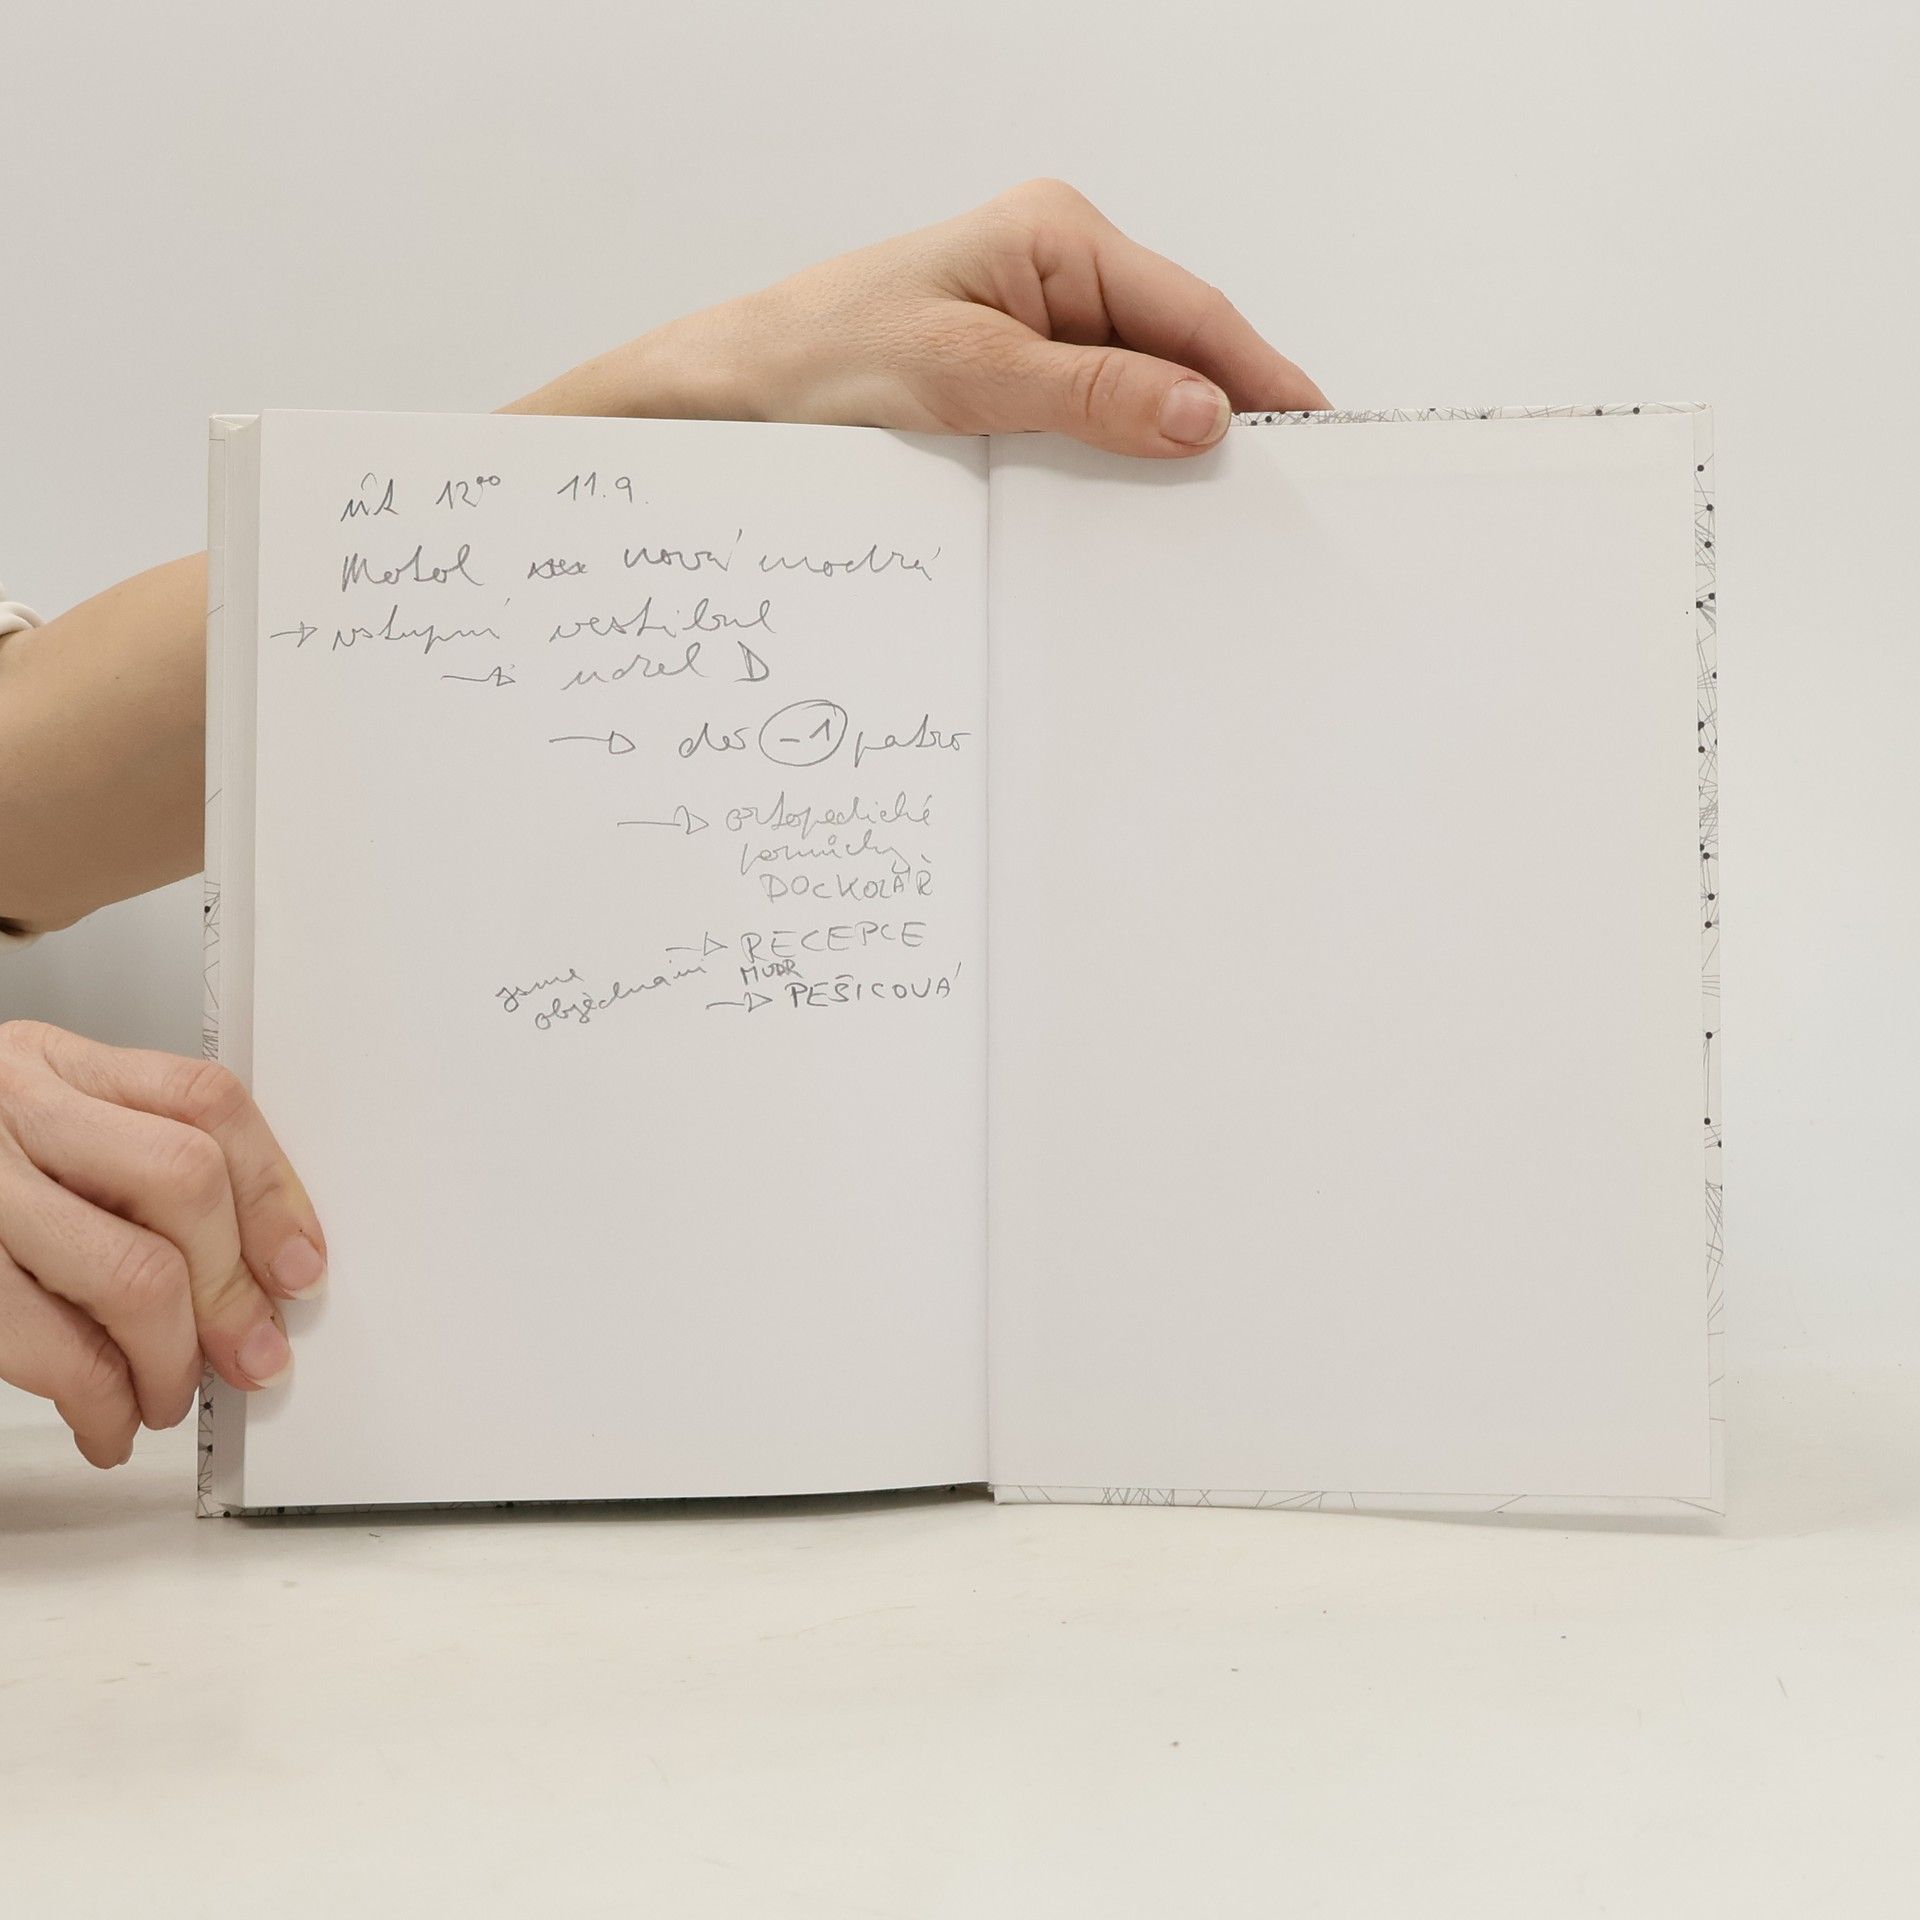 út 12⁰⁰ 11.9.
Motol nová modrá
→ vstupní vestibul
→ uzel D
→ do -1 patro
→ ortopedické
pomůcky
DOCKOLÁŘ
→ RECEPCE
jsme objednáni
→ MUDR PEŠICOVÁ